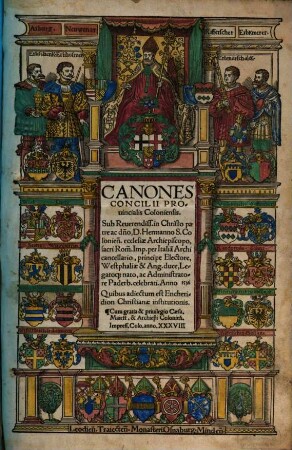 CANONES
CONCILII PRO
uincialis Coloniensis.
Sub Reuerendiss. in Christo pa
tre ac dño, D. Hermanno S. Co
lonieñ. ecclesiæ Archiepiscopo,
sacri Roñ. Imp. per Italiã Archi
cancellario, principe Electore,
Westphaliæ & Ang. duce, Le,
gatoq; nato, ac Administrato
re Paderb. celebrati. Anno 1536
Quibus adiectum est Enchiri
dion Christianæ institutionis.
Cum gratia & priuilegio Cæsa.
Maiest. & Archiepi Colonieñ.
Impress. Colo. anno. XXXVIII
Leodien: Traiecten: Monasterĩ: Osnaburg: Minden: